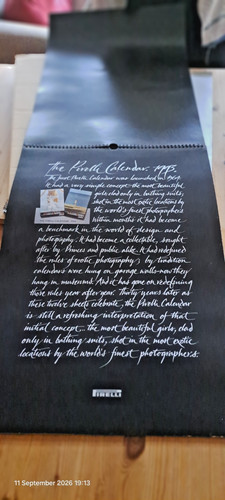 The Pirelli Calendar. 1993.
The first Pirelli Calendar was launched in 1964.
It had a very simple concept - the most beautiful
girls clad only in bathing suits,
shot in the most exotic locations by
the world's finest photographers
Within months it had become -
a benchmark in the world of design and
photography. It had become a collectable, sought
after by Princes and public alike. It had redefined
the rules of erotic photography; by tradition
calendars were hung on garage walls - now they
hang in museums. And it has gone on redefining
those rules year after year. Thirty years later as
these twelve sheets celebrate, the Pirelli Calendar
is still a refreshing interpretation of that
initial concept - the most beautiful girls, clad
only in bathing suits, shot in the most exotic
locations by the world's finest photographers.
PIRELLI
11 September 2026 19:13